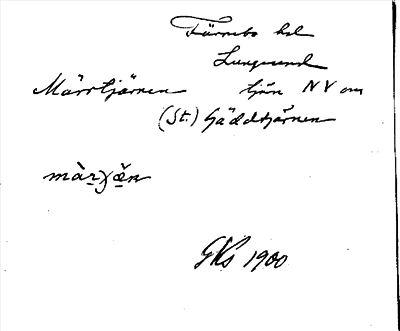 Färnebo hd
Lungsund
Märrtjärnen tjärn NV om
(St.) Gäddtjärnen
GKs 1900